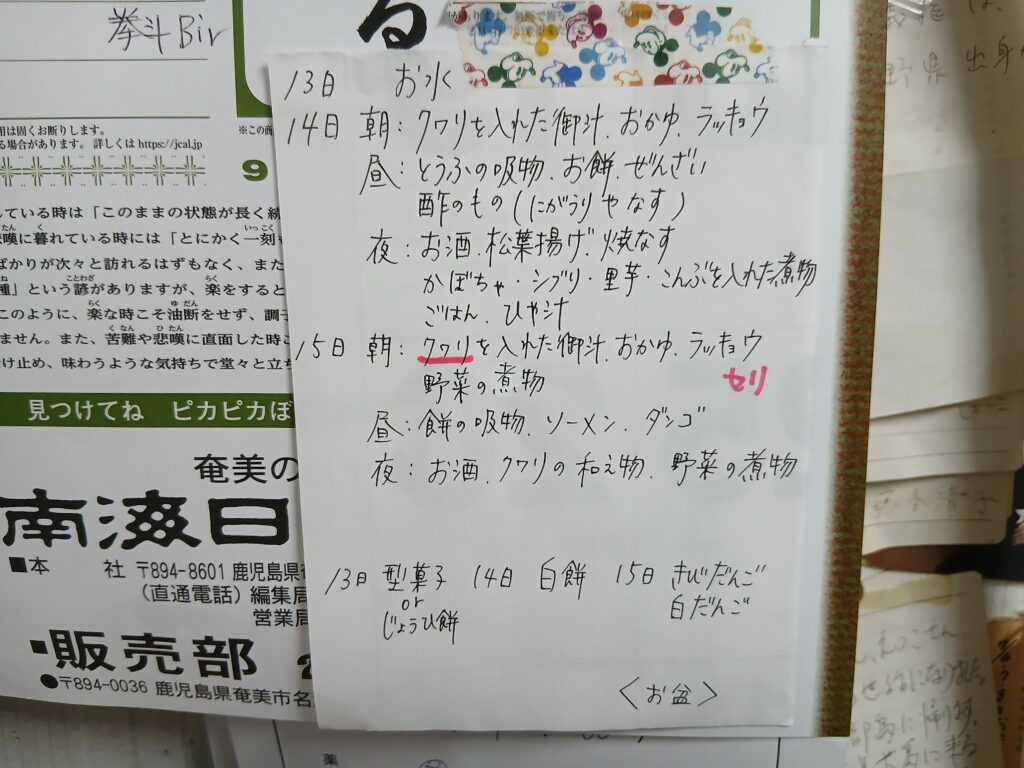 拳斗Bir
る
用は固くお断りします。
る場合があります。 詳しくは https://jcal.jp
※この商
9
している時は「このままの状態が長く続
悲嘆に暮れている時には「とにかく一刻も
ばかりが次々と訪れるはずもなく、また
種」という諺がありますが、楽をすると
このように、楽な時こそ油断をせず、調子
ません。また、苦難や悲嘆に直面した時こ
け止め、味わうような気持ちで堂々と立ち
見つけてね ピカピカぼ
奄美の
南海日
■本 社 〒894-8601 鹿児島県奄
(直通電話) 編集局
営業局
▪販売部
●〒894-0036 鹿児島県奄美市名
13日 お水
14日 朝：クワリを入れた御汁、おかゆ、ラッキョウ
昼：とうふの吸物、お餅、ぜんざい
酢のもの(にがうりやなす)
夜：お酒、松葉揚げ、焼なす
かぼちゃ・シブリ・里芋・こんぶを入れた煮物
ごはん、ひや汁
15日 朝：クワリを入れた御汁、おかゆ、ラッキョウ
セリ
野菜の煮物
昼：餅の吸物、ソーメン、ダンゴ
夜：お酒、クワリの和え物、野菜の煮物
13日 型菓子 14日 白餅 15日 きびだんご
or 白だんご
じょうひ餅
〈お盆〉
野県 出身
えつこさん
せ話になりました
島に帰ります
薬